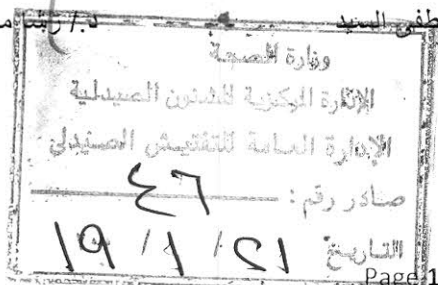 طفى السيد د./ رشا م
وزارة الصحة
الإدارة المركزية للشئون الصيدلية
الإدارة العامة للتفتيش الصيدلي
صادر رقم : ٤٦
التاريخ ٢١ / ١ / ١٩
Page 1